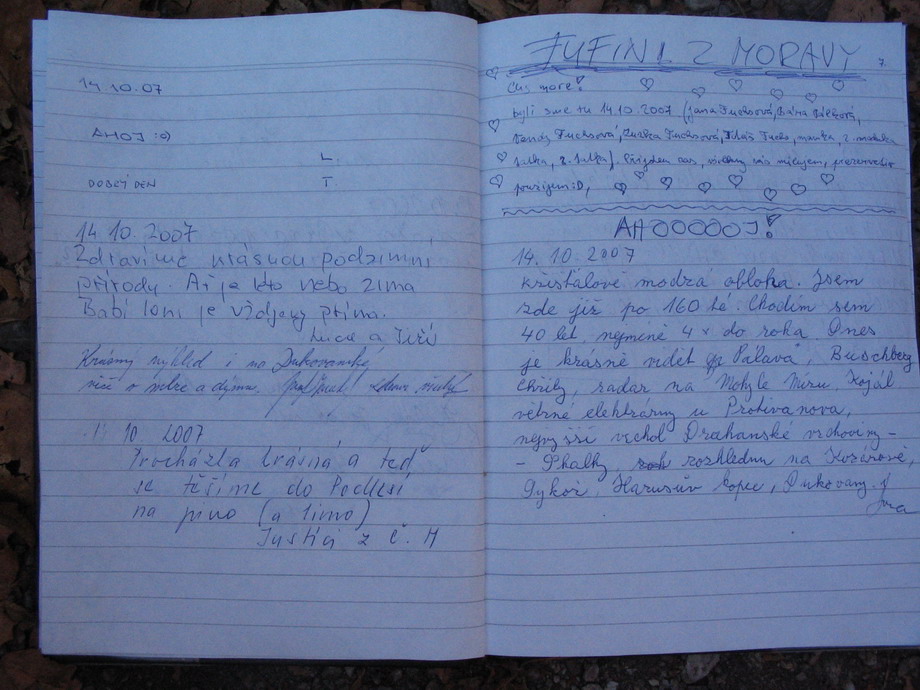 14.10.07
AHOJ :o)
L.
DOBRÝ DEN
T.
14.10.2007
Zdravíme krásnou podzimní
přírodu. Ať je léto nebo zima
Babí loni je vždycky príma.
Lucie a Jiří
Krásný výhled i na Dukovanské
věže o mlze a dýmu.
14.10.2007
Procházka krásná a teď
se těšíme do Podlesí
na pivo (a limo)
Justici z Č. H
FUFINI Z MORAVY
7.
Čus móře!
byli sme tu 14.10.2007 (Jana Fuchsová, Bára
Fuchsová, Zuzka Fuchsová, Fuchs,
přijdem zas, milujem,
:D,
AHOOOOOJ!
14.10.2007
křišťálově modrá obloha. Jsem
zde již po 160 té. Chodím sem
40 let, nejméně 4 x do roka. Dnes
je krásně vidět Pálava, Buschberg
chřiby, radar na Mohyle Míru, Kojál
větrné elektrárny u Protivanova,
nejvyšší vrchol Drahanské vrchoviny -
- Skalky, rozhlednu na Kozárově,
Sýkoř, Harusův kopec, Dukovany.
Jura